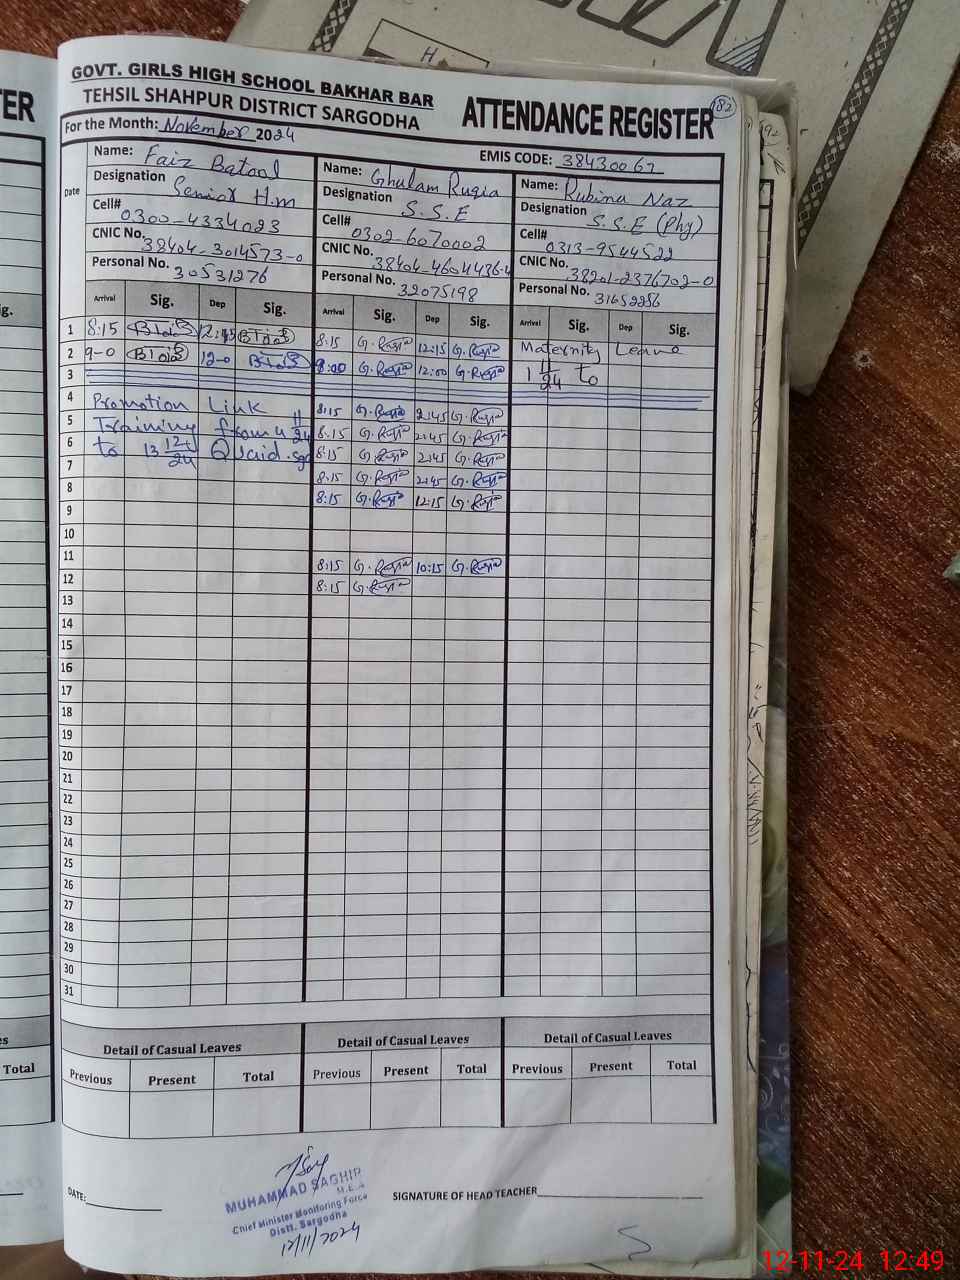 TER
GOVT. GIRLS HIGH SCHOOL BAKHAR BAR
TEHSIL SHAHPUR DISTRICT SARGODHA
ATTENDANCE REGISTER
182
For the Month: November 2024
EMIS CODE: 38430067
Date
Name: Faiz Batool
Designation Senior H.m
Cell# 0300-4334023
CNIC No. 38404-3014573-0
Personal No. 30531276
Name: Ghulam Ruqia
Designation S.S.E
Cell# 0302-6070002
CNIC No. 38404-4604436-4
Personal No. 32075198
Name: Rubina Naz
Designation S.S.E (Phy)
Cell# 0313-9544522
CNIC No. 38201-2376702-0
Personal No. 31652256
Arrival Sig. Dep Sig. Arrival Sig. Dep Sig. Arrival Sig. Dep Sig.
1 8:15 12:15 8:15 G.Ruqia 12:15 G.Ruqia Maternity Leave
2 9-0 12-0 8:00 G.Ruqia 12:00 G.Ruqia 1 11/24 to
3
4 Promotion Link 8:15 G.Ruqia 2:45 G.Ruqia
5 Training from 4 11/24 8:15 G.Ruqia 2:45 G.Ruqia
6 to 13 12/24 Quaid.sgd 8:15 G.Ruqia 2:45 G.Ruqia
7 8:15 G.Ruqia 2:45 G.Ruqia
8 8:15 G.Ruqia 12:15 G.Ruqia
9
10
11 8:15 G.Ruqia 10:15 G.Ruqia
12 8:15 G.Ruqia
13
14
15
16
17
18
19
20
21
22
23
24
25
26
27
28
29
30
31
Detail of Casual Leaves Detail of Casual Leaves Detail of Casual Leaves
Total
Previous Present Total Previous Present Total Previous Present Total
DATE:
MUHAMMAD SAGHIR
M.E.A
Chief Minister Monitoring Force
Distt. Sargodha
12/11/2024
SIGNATURE OF HEAD TEACHER
12-11-24 12:49